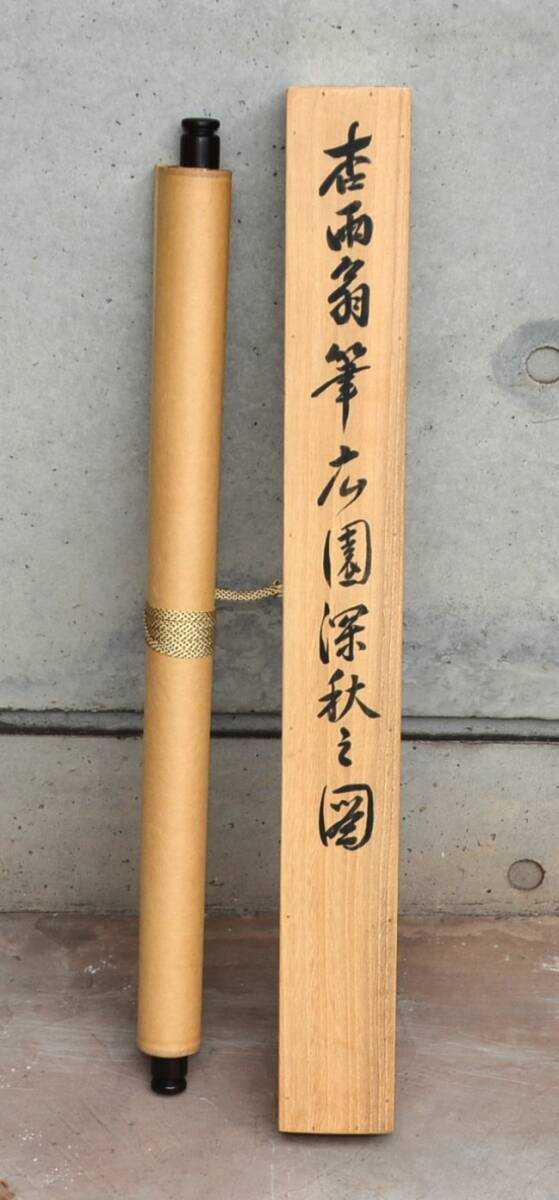 杏雨翁筆広園深秋之図